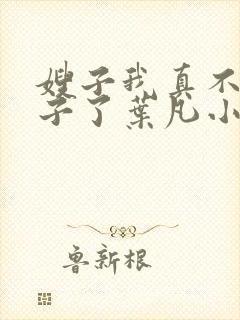 嫂子我真不
子了葉凡小
魯新根